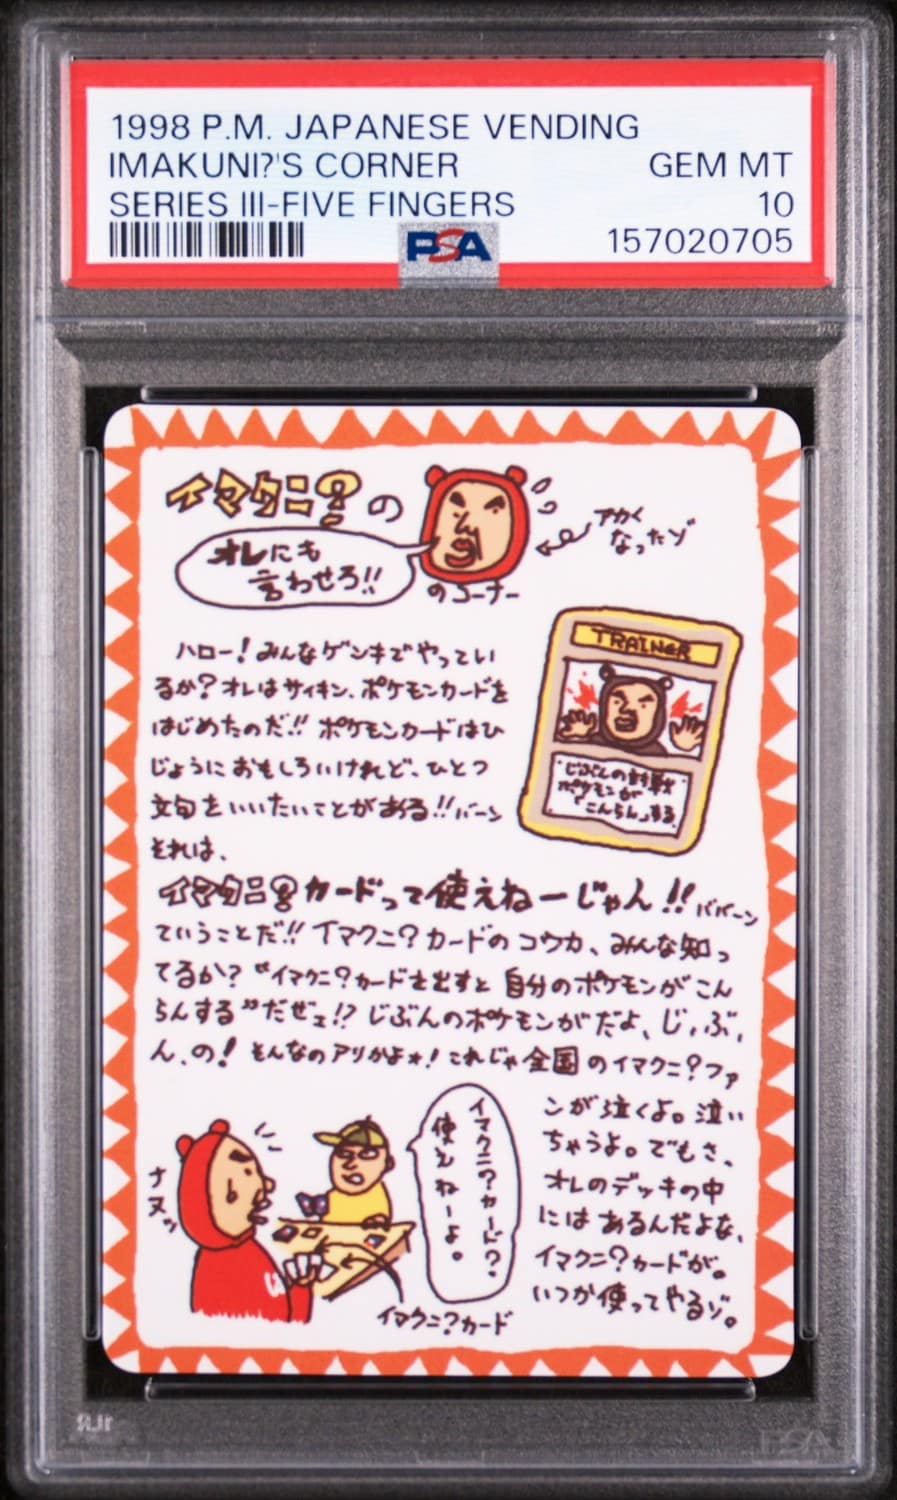 1998 P.M. JAPANESE VENDING
IMAKUNI?'S CORNER GEM MT
SERIES III-FIVE FINGERS 10
PSA 157020705
イマクニ?の
オレにも
言わせろ!!
のコーナー
アカく
なったゾ
TRAINER
じぶんの対戦
ポケモンが
「こんらん」する
ハロー!みんなゲンキでやってい
るか?オレはサイキン、ポケモンカードを
はじめたのだ!!ポケモンカードはひ
じょうにおもしろいけれど、ひとつ
文句をいいたいことがある!!バーン
それは、
イマクニ?カードって使えねーじゃん!!ババーン
ていうことだ!!イマクニ?カードのコウカ、みんな知っ
てるか?“イマクニ?カードを出すと自分のポケモンがこん
らんする”だぜェ!?じぶんのポケモンがだよ、じ、ぶ、
ん、の!そんなのアリかよォ!これじゃ全国のイマクニ?ファ
ンが泣くよ。泣い
ちゃうよ。でもさ、
オレのデッキの中
にはあるんだよな、
イマクニ?カードが。
いつか使ってやるゾ。
イマクニ?カード?
使えねーよ。
ナヌッ
イマクニ?カード
PSA